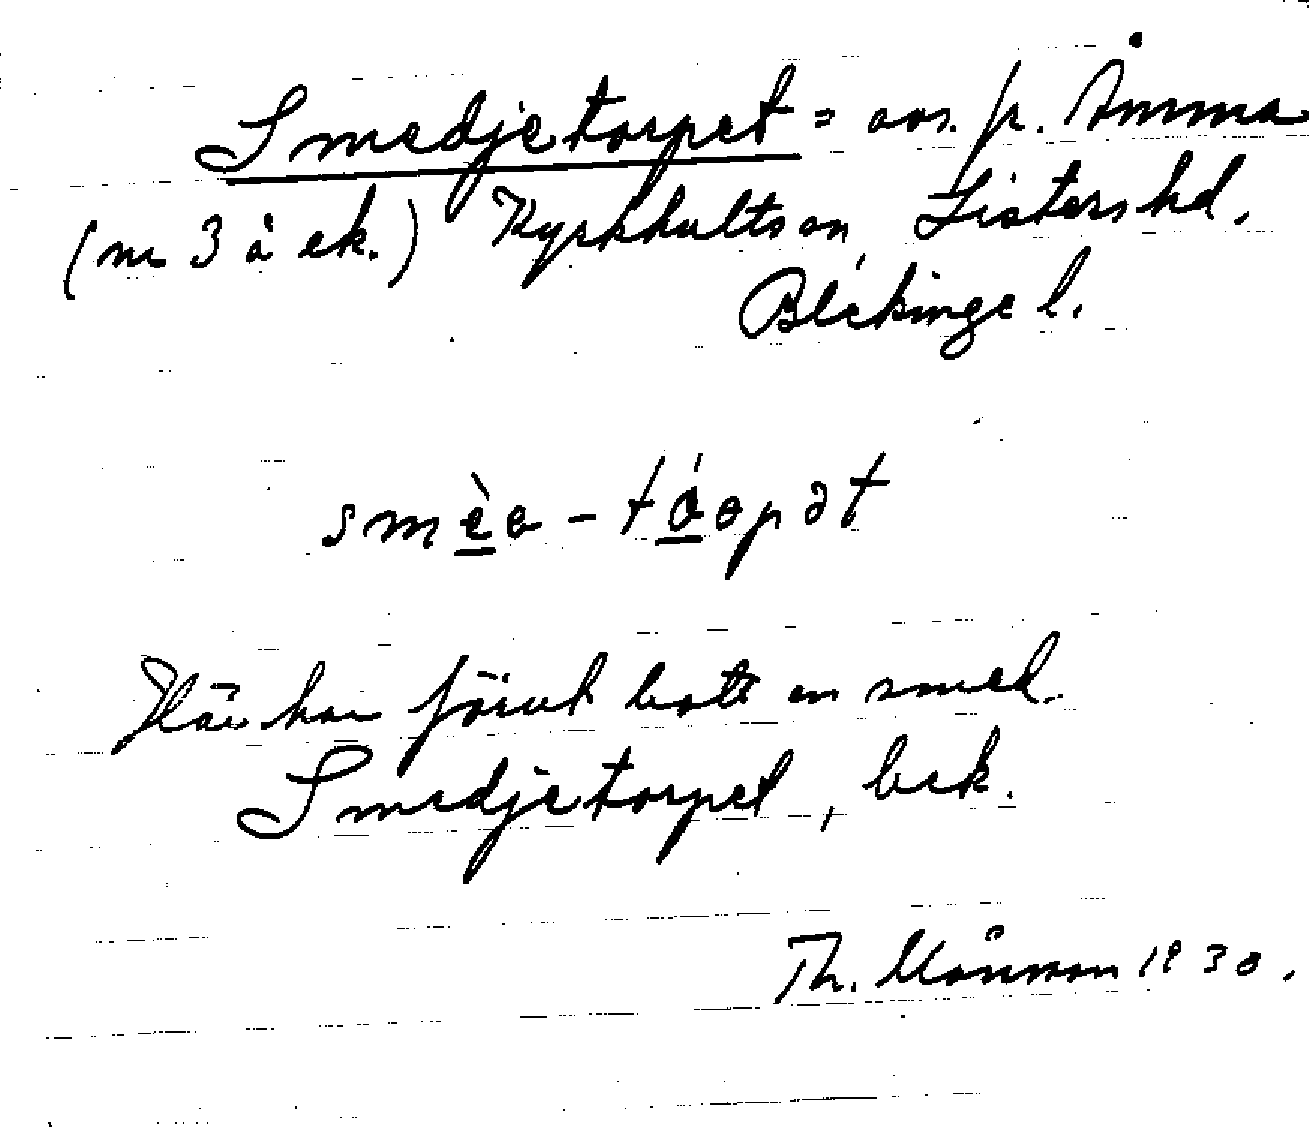 Smedjetorpet = avs. p. Åmma
(nr 3 å ek.) Kyrkhults sn Listers hd.
Blekinge l.
smèa - tóapət
Här har förut bott en smed.
Smedjetorpet, bek.
Th. Månsson 1930.